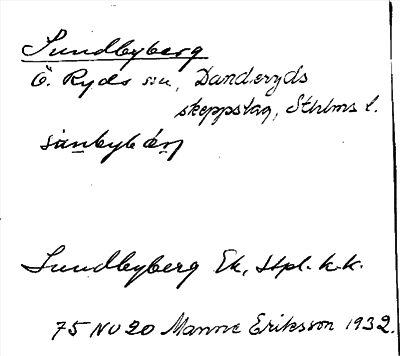 Sundbyberg
Ö. Ryds sn, Danderyds
skeppslag, Sthlms l.
Sundbyberg Ek, stpl. k.k.
75 NV 20 Manne Eriksson 1932.